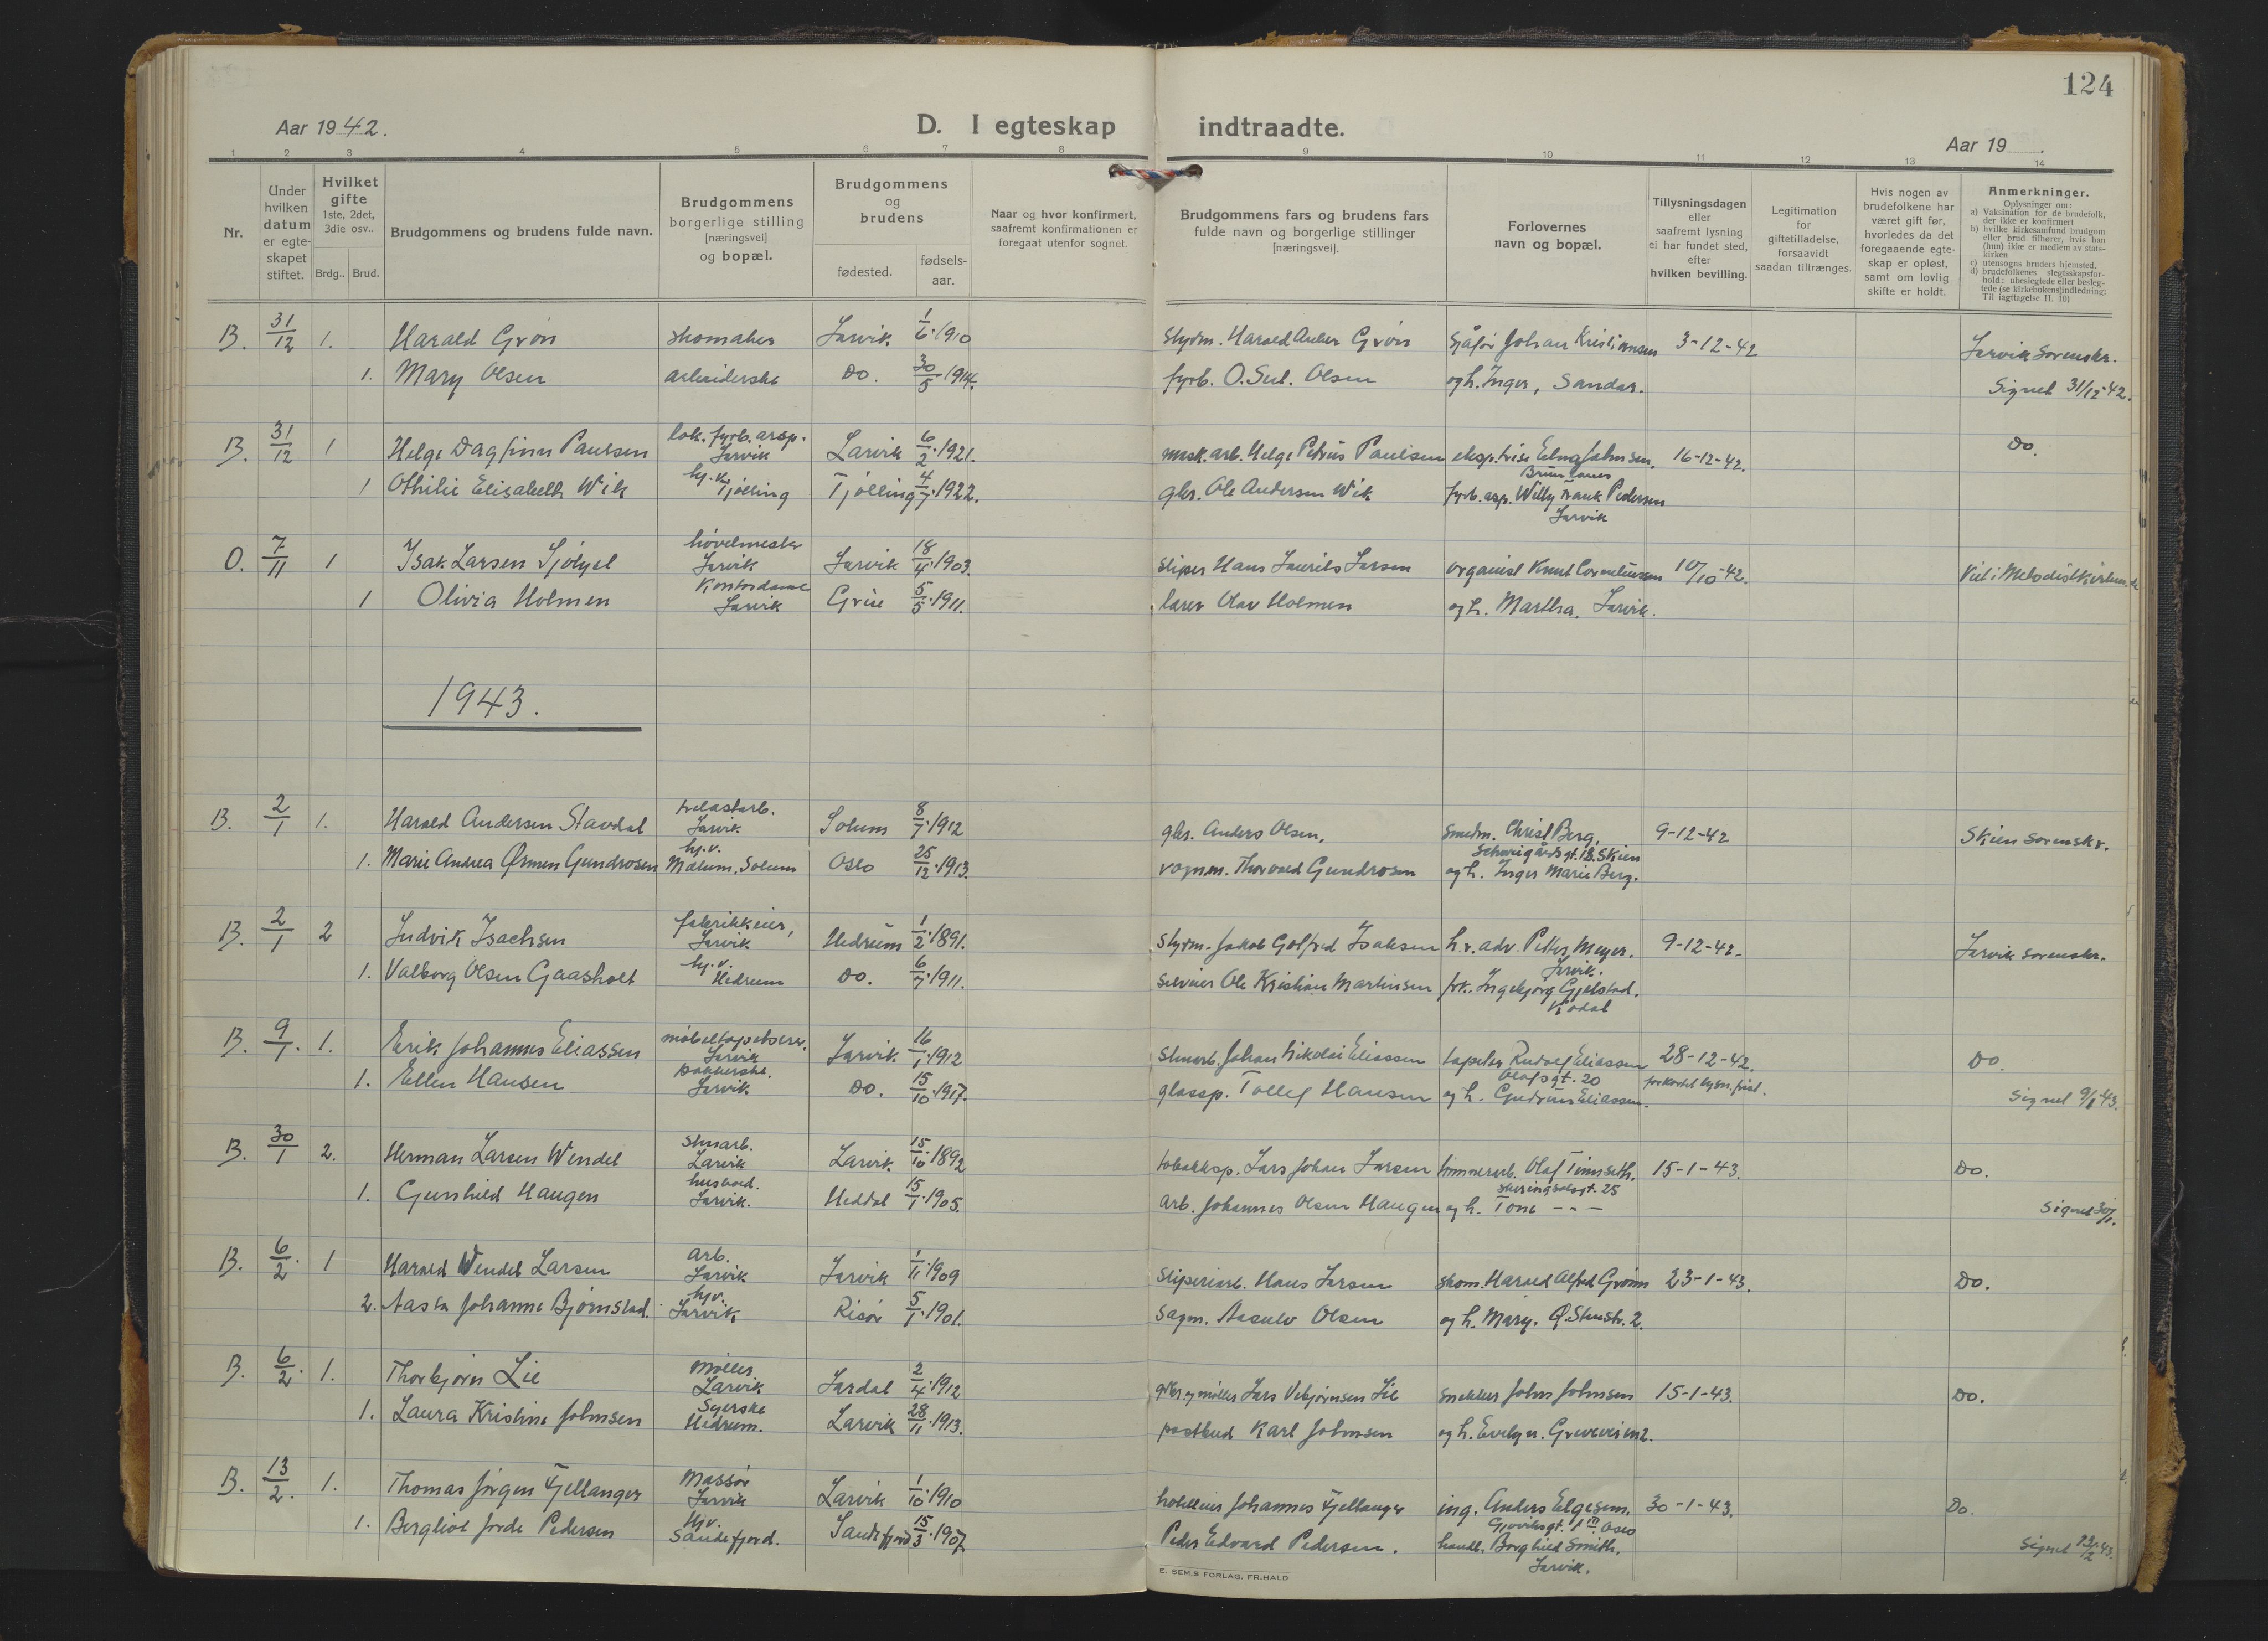 124
Aar 1942.
D. I egteskap indtraadte.
Aar 19 .
1 2 3 4 5 6 7 8 9 10 11 12 13 14
Nr.
Under hvilken datum er egte-skapet stiftet.
Hvilket gifte 1ste, 2det, 3die osv..
Brdg.. Brud.
Brudgommens og brudens fulde navn.
Brudgommens borgerlige stilling [næringsvei] og bopæl.
Brudgommens og brudens
fødested.
fødsels-aar.
Naar og hvor konfirmert, saafremt konfirmationen er foregaat utenfor sognet.
Brudgommens fars og brudens fars fulde navn og borgerlige stillinger [næringsvei].
Forlovernes navn og bopæl.
Tillysningsdagen eller saafremt lysning ei har fundet sted, efter hvilken bevilling.
Legitimation for giftetilladelse, forsaavidt saadan tiltrænges.
Hvis nogen av brudefolkene har været gift før, hvorledes da det foregaaende egte-skap er opløst, samt om lovlig skifte er holdt.
Anmerkninger.
Oplysninger om:
a) Vaksination for de brudefolk, der ikke er konfirmert
b) hvilke kirkesamfund brudgom eller brud tilhører, hvis han (hun) ikke er medlem av stats-kirken
c) utensogns bruders hjemsted.
d) brudefolkenes slegtsskapsfor-hold: ubeslegtede eller besleg-tede (se kirkebokens indledning: Til iagttagelse II. 10)
B. 31/12 1. Harald Grön skomaker Larvik 1/6.1910 Styrm. Harald Grön sjåfør Johan Kristiansen 3-12-42 Larvik Sorenskr.
1. Mary Olsen arbeiderske Do. 30/5 1914. fyrb. O. Olsen og h. Inger, Sandar. Signet 31/12-42.
B. 31/12 1 Helge Dagfinn Paulsen lok. fyrb. asp. Larvik Larvik 6/2.1921. mask. arb. Helge Petrus Paulsen eksp.trise Elna Johnsen. 16-12-42. Do.
1 Othilie Elisabeth Wik hj.v. Tjølling Tjølling 4/7.1922. gbr. Ole Andersen Wik fyrb. asp. Willy Frank Pedersen Larvik
O. 7/11 1 Isak Larsen Sjölyst høvelmester Larvik Larvik 18/4.1903. sliper Hans Laurits Larsen organist Knut Corneliussen 10/10-42. Viet i Metodistkirken
1 Olivia Holmen Kontordame Larvik Grue 5/5.1911. lærer Olav Holmen og h. Martha. Larvik.
1943.
B. 2/1 1. Harald Andersen Stavdal trelastarb. Larvik Solum 8/7.1912 gbr. Anders Olsen. Smedm. Christ Berg, 9-12-42 Skien Sorenskr.
1. Marie Andrea Ørmen Gundrosen hj.v. Mælum. Solum Oslo 25/12.1913. vognm. Thorvald Gundrosen og h. Inger Marie Berg.
B. 2/1 2 Ludvik Isachsen fabrikkeier, Larvik Hedrum 1/2.1891. Styrm. Jakob Gotfred Isaksen h.r. adv. Petter Meyer. Larvik. 9-12-42. Larvik sorenskr.
1. Valborg Olsen Gaasholt hj.v. Hedrum Do. 6/7.1911. selveier Ole Kristian Martinsen frk. Ingebjørg Gjelstad. Kodal
B. 9/1. 1. Erik Johannes Eliassen møbeltapetserer. Larvik Larvik 16/1.1912 Stenarb. Johan Nikolai Eliassen tapetser Rudolf Eliassen Olafsgt. 20 28-12-42. forkortet lysn. frist. Do.
1. Ellen Hansen pakkerske. Larvik Do. 15/10.1917. glassp. Tollef Hansen og h. Gudrun Eliassen. Signet 9/1-43.
B. 30/1 2. Herman Larsen Wendel Stenarb. Larvik Larvik. 15/10.1892 tobakksp. Lars Johan Larsen tømmerarb. Olaf Tinnseth. 25 15-1-43. Do.
1. Gunhild Haugen husbest. Larvik. Heddal 15/1.1905. arb. Johannes Olsen Haugen og h. Tone - - - Signet 30/1.
B. 6/2. 1 Harald Wendel Larsen arb. Larvik Larvik 1/11.1909 Sliperiarb. Hans Larsen skom. Harald Alfred Grönn 23-1-43. Do.
2. Aasta Johanne Bjørnstad. hjv. Larvik Risør 5/1.1901. Sagm. Aasulv Olsen og h. Mary. Ø. Stenstr. 2.
B. 6/2. 1. Thorbjørn Lie Møller. Larvik Lardal 2/4.1912 gbr. og møller Lars Vebjørnsen Lie snekker John Johnsen 15-1-43. Do.
1. Laura Kristine Johnsen Syerske Hedrum. Larvik 28/11.1913. postbud Karl Johnsen og h. Evelyn. Greveveien 2.
B. 13/2. 1. Thomas Jørgen Fjellanger Massør Larvik Larvik 1/10.1910 hotelleier Johannes Fjellanger ing. Anders Elgesem. Gjøviksgt. 1 III Oslo 30-1-43. Do.
1. Bergliot Jorde Pedersen Hjv. Sandefjord. Sandefjord 15/3.1907 Peder Edvard Pedersen. handl. Borghild Smith. Larvik. Signet 43.
E. SEM.S FORLAG. FR.HALD